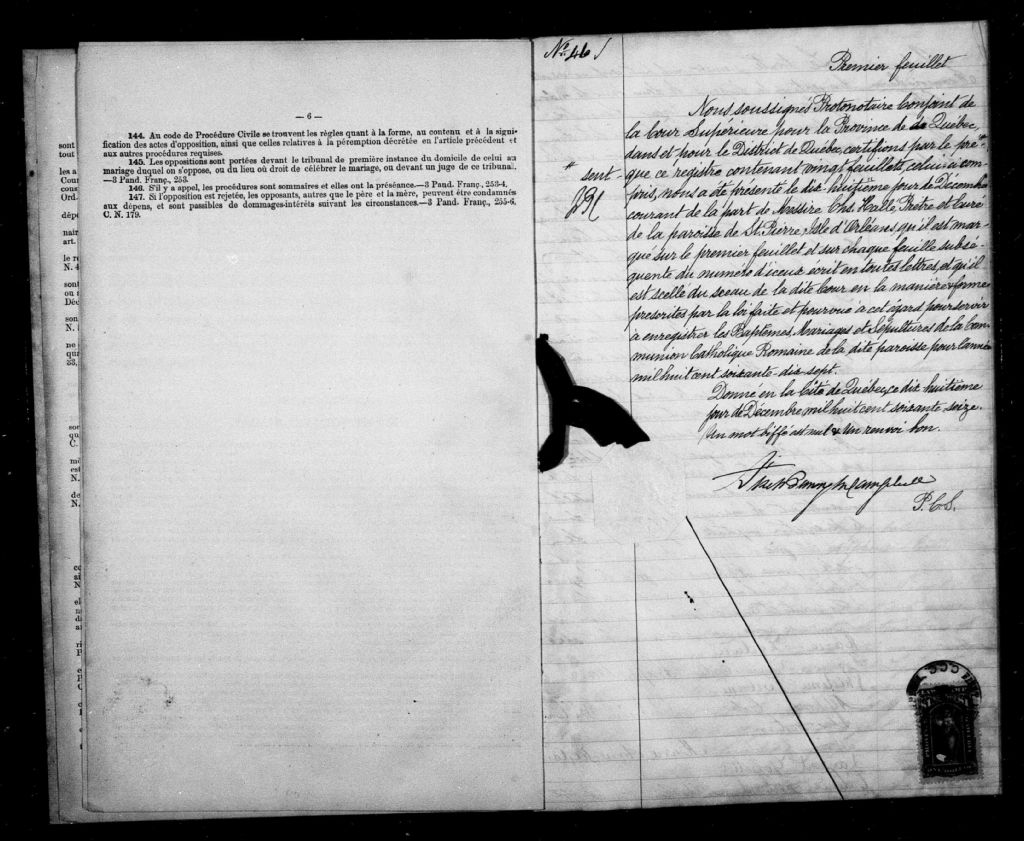 — 6 —
144. Au code de Procédure Civile se trouvent les règles quant à la forme, au contenu et à la signi-
fication des actes d'opposition, ainsi que celles relatives à la péremption décrétée en l'article précédent et
aux autres procédures requises.
145. Les oppositions sont portées devant le tribunal de première instance du domicile de celui au
mariage duquel on s'oppose, ou du lieu où droit de célébrer le mariage, ou devant un juge de ce tribunal.
—3 Pand. Franç., 253.
146. S'il y a appel, les procédures sont sommaires et elles ont la préséance.—3 Pand. Franç., 253-4.
147. Si l'opposition est rejetée, les opposants, autres que le père et la mère, peuvent être condamnés
aux dépens, et sont passibles de dommages-intérêts suivant les circonstances.—3 Pand. Franç., 255-6.
C. N. 179.
No. 46
Premier feuillet
Nous soussignés Protonotaire Conjoint de
la Cour Supérieure pour la Province de Québec,
dans et pour le District de Québec, certifions par le pré-
" sent-
que ce registre contenant vingt feuillets, celui-ci com-
pris, nous a été présenté le dix-huitième jour de Décembre
courant de la part de Messire Chs. Hallé, Prêtre et Curé
de la paroisse de St. Pierre, Isle d'Orléans, qu'il est mar-
qué sur le premier feuillet et sur chaque feuille subsé-
quente du numéro d'iceux écrit en toutes lettres, et qu'il
est scellé du sceau de la dite Cour en la manière & forme
prescrites par la loi faite et pourvue à cet égard, pour servir
à enregistrer les Baptêmes, Mariages et Sépultures de la Com-
munion Catholique Romaine de la dite paroisse pour l'année
mil huit cent soixante-dix-sept.
Donné en la Cité de Québec, ce dix huitième
jour de Décembre mil huit cent soixante seize.
Un mot biffé est nul & Un renvoi bon.
Campbell
P.C.S.